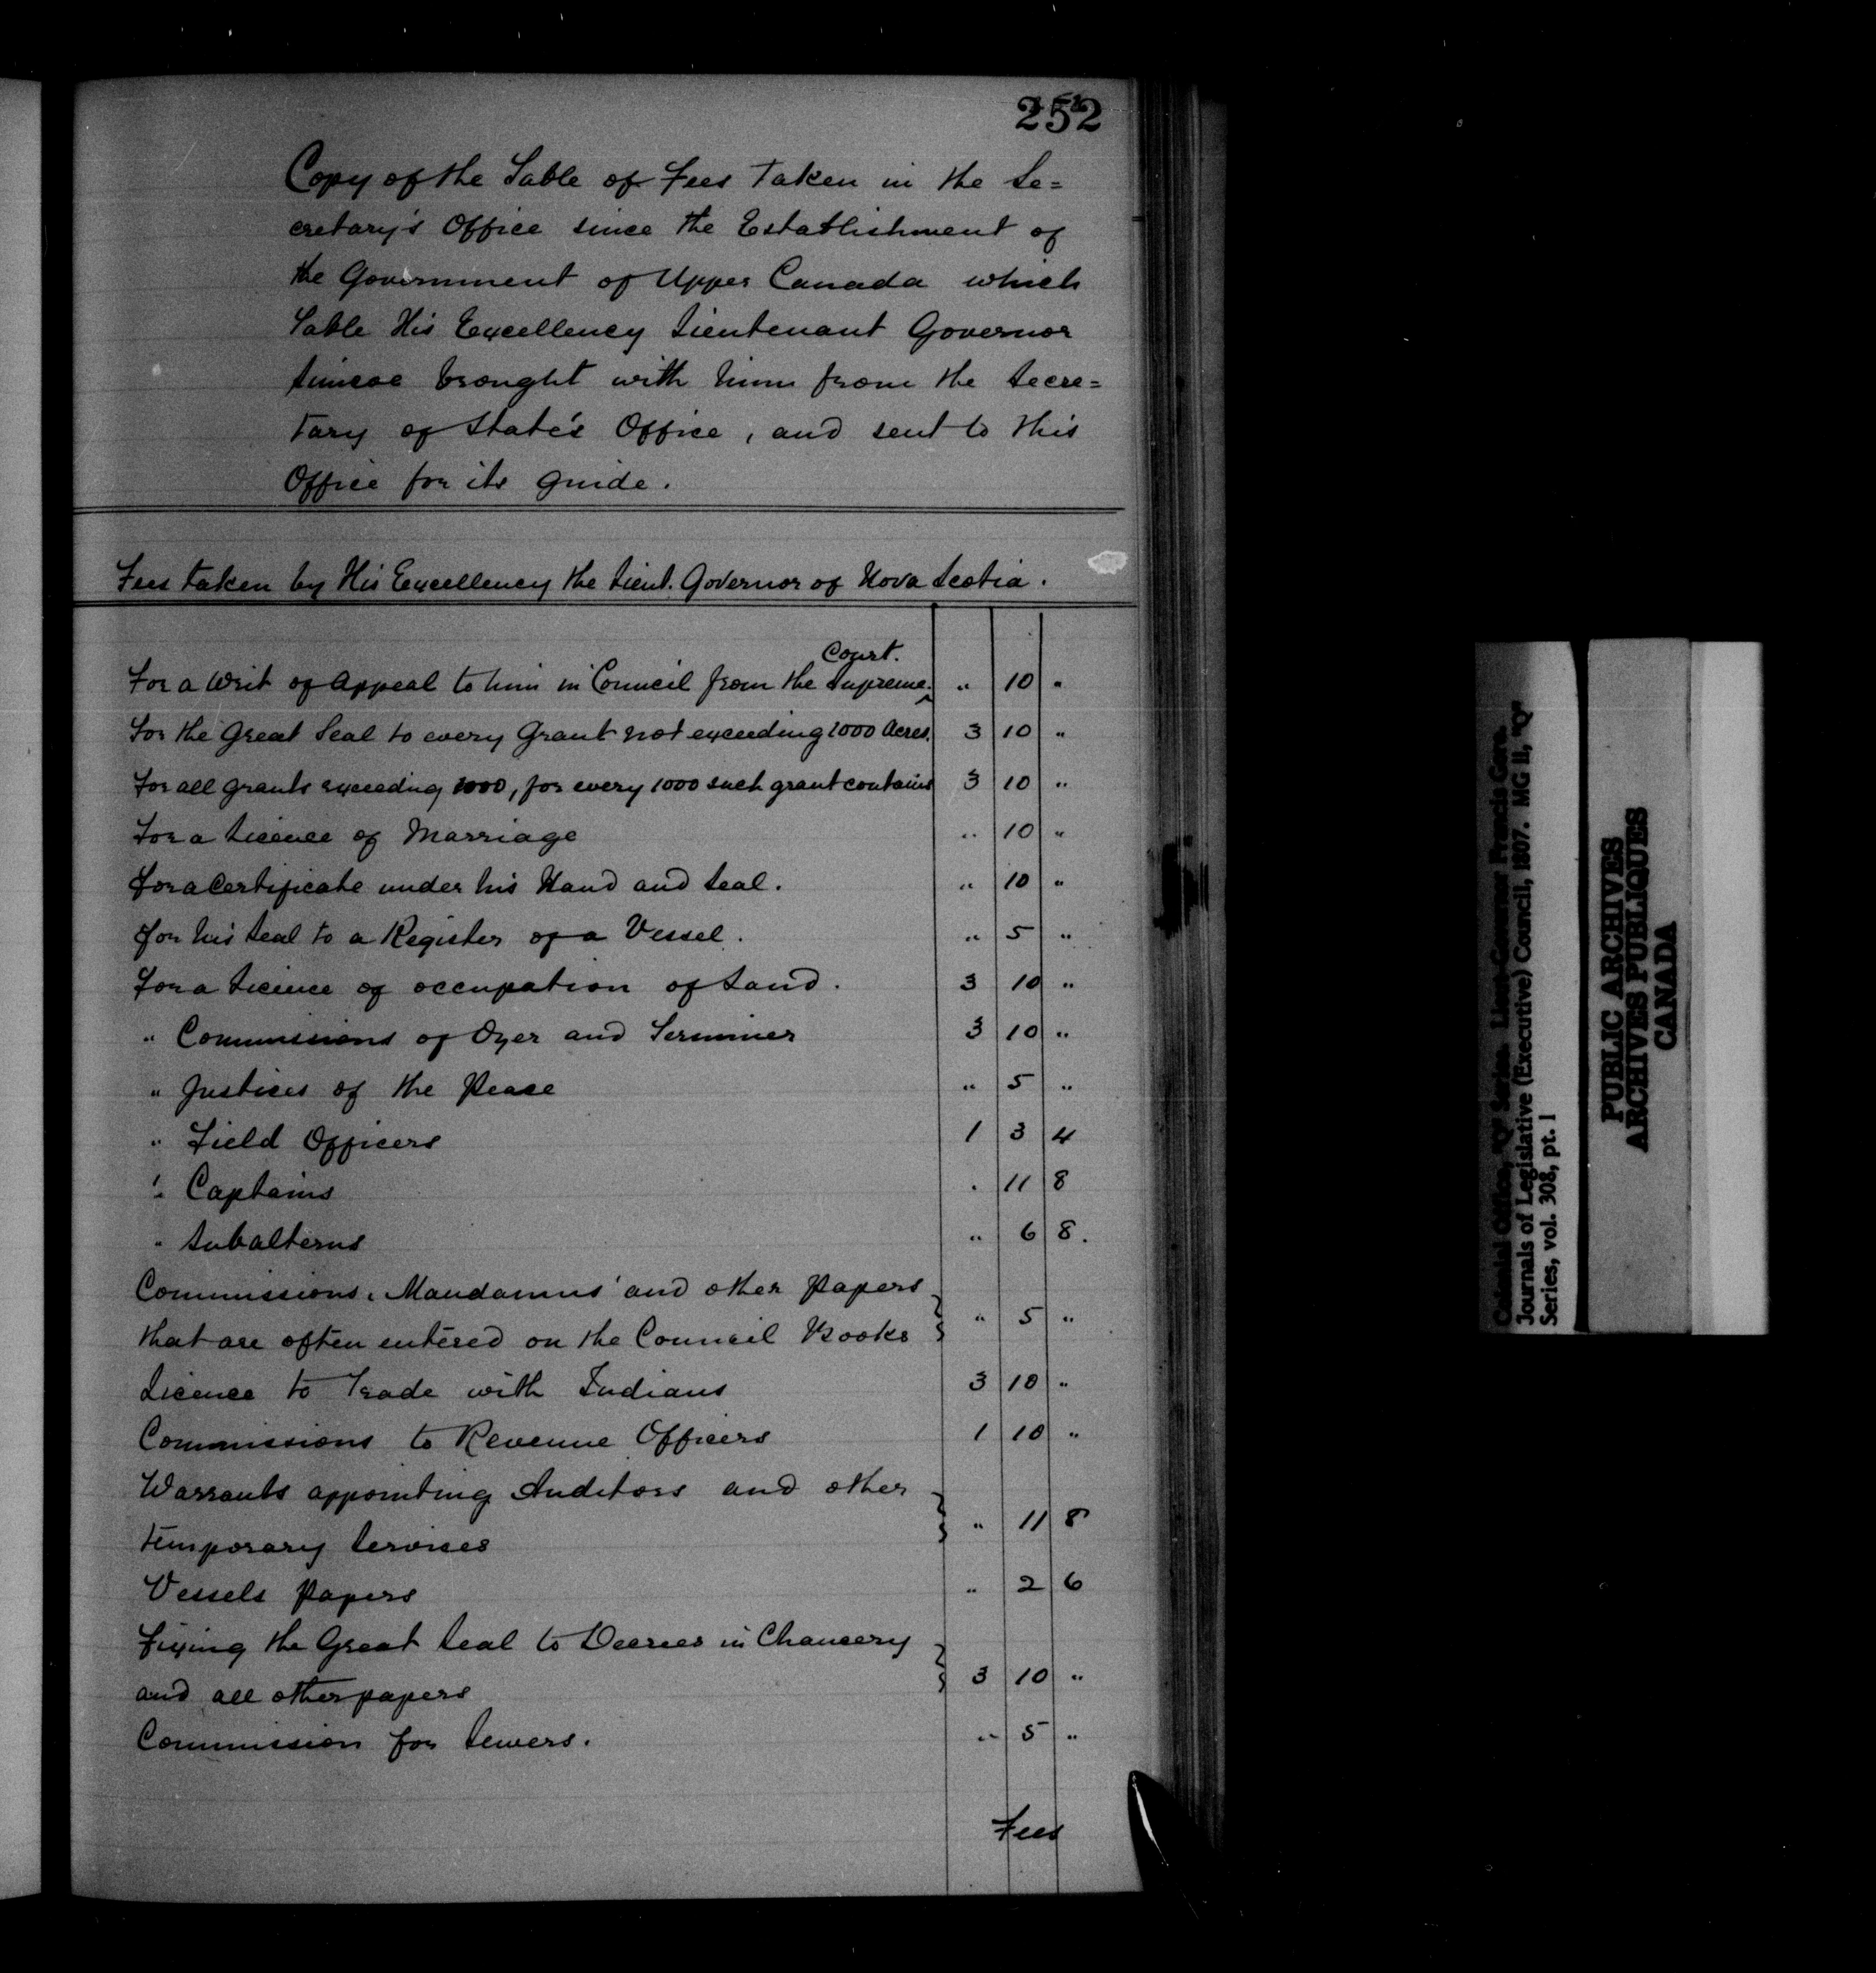 252
Copy of the Table of Fees Taken in the Se=
cretary's Office since the Establishment of
the Government of Upper Canada which
Table His Excellency Lieutenant Governor
Simcoe brought with him from the Secre=
tary of State's Office, and sent to this
Office for its guide.
Fees taken by His Excellency the Lieut. Governor of Nova Scotia.
Court.
For a Writ of Appeal to him in Council from the Supreme. " 10 "
For the Great Seal to every Grant not exceeding 1000 Acres. 3 10 "
For all grants exceeding 1000, for every 1000 such grant contains 3 10 "
For a Licence of Marriage " 10 "
For a Certificate under his Hand and Seal. " 10 "
For his Seal to a Register of a Vessel. " 5 "
For a Licence of occupation of Land. 3 10 "
" Commissions of Oyer and Terminer 3 10 "
" Justices of the Peace " 5 "
" Field Officers 1 3 4
" Captains . 11 8
" Subalterns " 6 8.
Commissions, Mandamus' and other Papers
that are often entered on the Council Books } " 5 "
Licence to Trade with Indians 3 10 "
Commissions to Revenue Officers 1 10 "
Warrants appointing Auditors and other
temporary Services } " 11 8
Vessels Papers " 2 6
Fixing the Great Seal to Decrees in Chancery
and all other papers } 3 10 "
Commission for Sewers. " 5 "
Fees
Colonial Office, "Q" Series. Lieut-Governor Francis Gore.
Journals of Legislative (Executive) Council, 1807. MG 11, "Q"
Series, vol. 308, pt. 1
PUBLIC ARCHIVES
ARCHIVES PUBLIQUES
CANADA